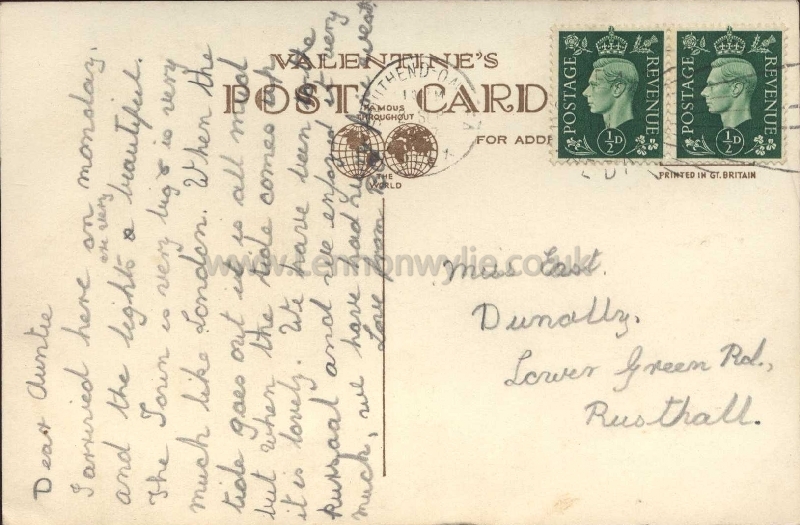 VALENTINE'S
POST CARD
FAMOUS
THROUGHOUT
THE
WORLD
FOR ADD
SOUTHEND-ON
POSTAGE REVENUE
½D
POSTAGE REVENUE
½D
PRINTED IN GT. BRITAIN
Dear Auntie
I arrived here on monday.
and the lights are very beautiful.
The Town is very big & is very
much like London. When the
tide goes out it is all mud
but when the tide comes in
it is lovely. We have been to the
Kursaal and we enjoyed it very
much, we have had
Love from
Miss East.
Dunolly.
Lower Green Rd.,
Rusthall.
www.lennonwylie.co.uk